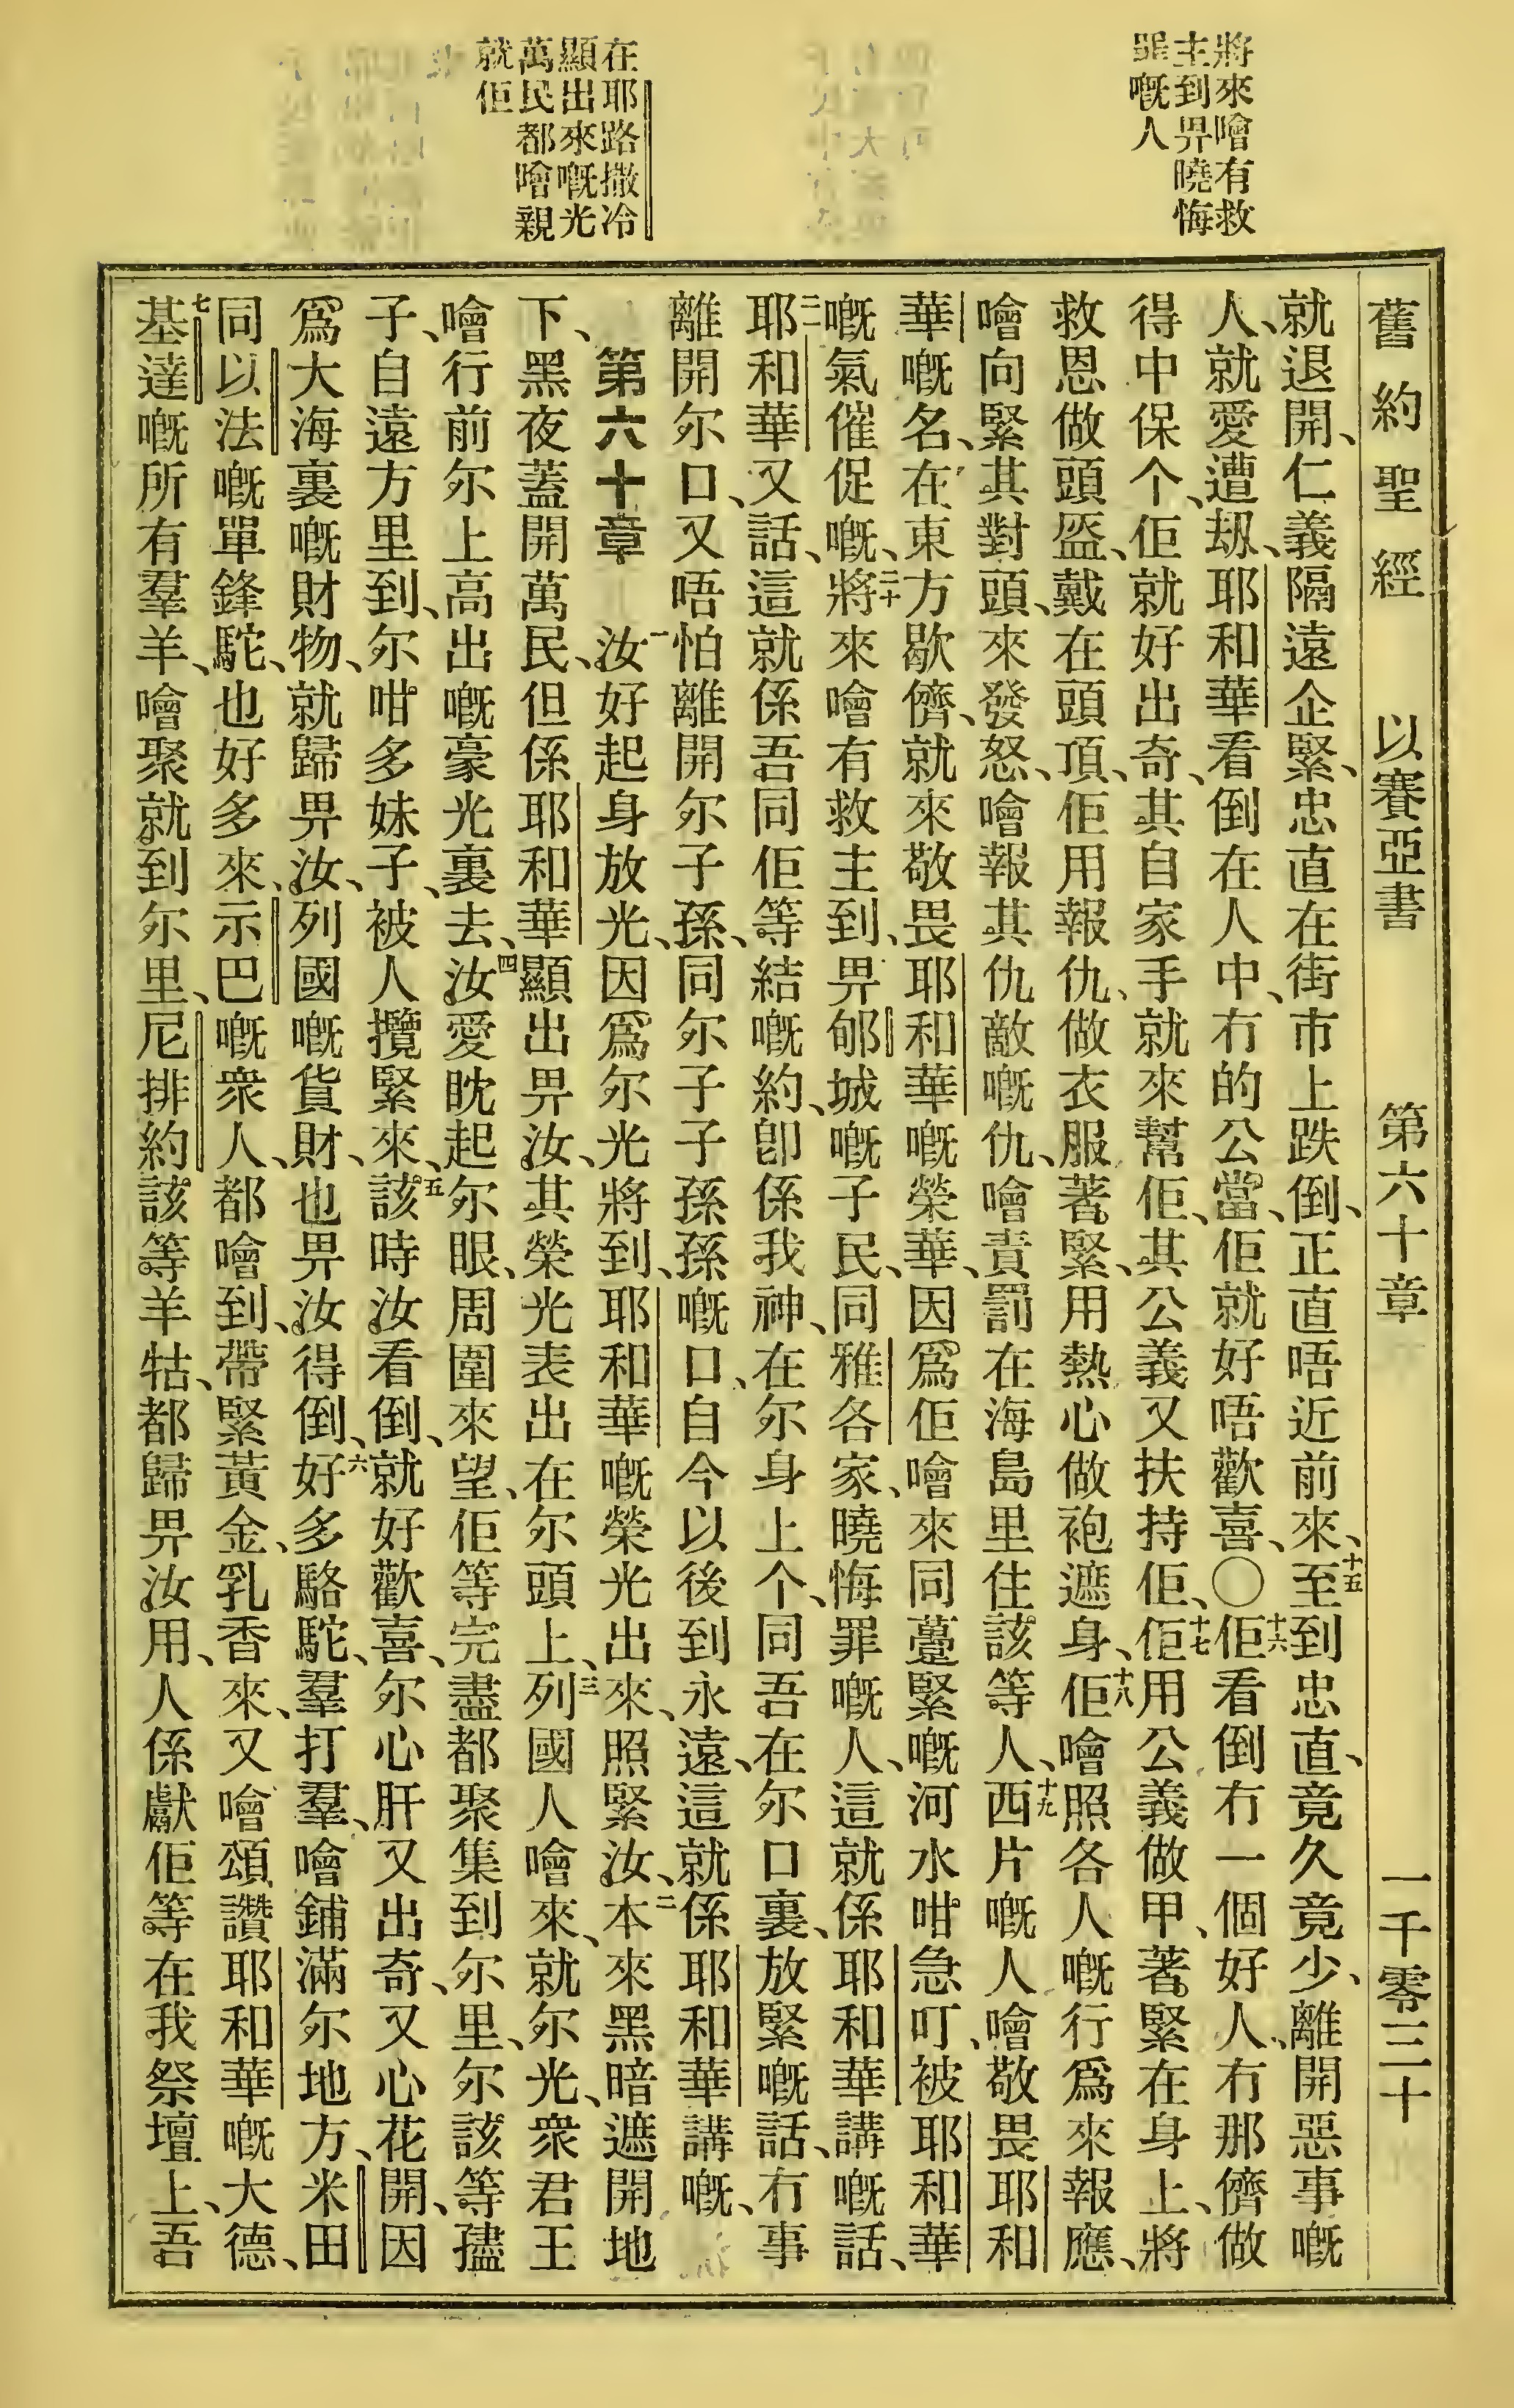 將來噲有救
主到畀曉悔
罪嘅人
在耶路撒冷
顯出來嘅光
萬民都噲親
就佢
舊約聖經　以賽亞書　第六十章　一千零三十
就退開、仁義隔遠企緊、忠直在街市上跌倒、正直唔近前來、十五至到忠直、竟久竟少、離開惡事嘅
人、就愛遭刼、耶和華看倒在人中、冇的公當、佢就好唔歡喜、〇十六佢看倒冇一個好人、冇那儕做
得中保个、佢就好出奇、其自家手就來幫佢、其公義又扶持佢、十七佢用公義做甲、著緊在身上、將
救恩做頭盔、戴在頭頂、佢用報仇、做衣服著緊、用熱心做袍遮身、十八佢噲照各人嘅行爲來報應、
噲向緊其對頭、來發怒、噲報其仇敵嘅仇、噲責罰在海島里住該等人、十九西片嘅人噲敬畏耶和
華嘅名、在東方歇儕、就來敬畏耶和華嘅榮華、因爲佢噲來同躉緊嘅河水咁急叮、被耶和華
嘅氣催促嘅、二十將來噲有救主到、畀郇城嘅子民、同雅各家、曉悔罪嘅人、這就係耶和華講嘅話、
二一耶和華又話、這就係吾同佢等結嘅約、卽係我神、在尔身上个、同吾在尔口裏、放緊嘅話、冇事
離開尔口、又唔怕離開尔子孫、同尔子子孫孫嘅口、自今以後到永遠、這就係耶和華講嘅、
第六十章　一汝好起身放光、因爲尔光將到、耶和華嘅榮光出來、照緊汝、二本來黑暗遮開地
下、黑夜蓋開萬民、但係耶和華顯出畀汝、其榮光表出在尔頭上、三列國人噲來、就尔光、衆君王
噲行前尔上高出嘅豪光裏去、四汝愛眈起尔眼、周圍來望、佢等完盡都聚集到尔里、尔該等孻
子、自遠方里到、尔咁多妹子、被人攬緊來、五該時汝看倒、就好歡喜、尔心肝又出奇、又心花開、因
爲大海裏嘅財物、就歸畀汝、列國嘅貨財、也畀汝得倒、六好多駱駝、羣打羣、噲鋪滿尔地方、米田
同以法嘅單鋒駝、也好多來、示巴嘅衆人、都噲到、帶緊黃金、乳香來、又噲頌讚耶和華嘅大德、
七基達嘅所有羣羊、噲聚就到尔里、尼排約該等羊牯、都歸畀汝用、人係獻佢等在我祭壇上、吾